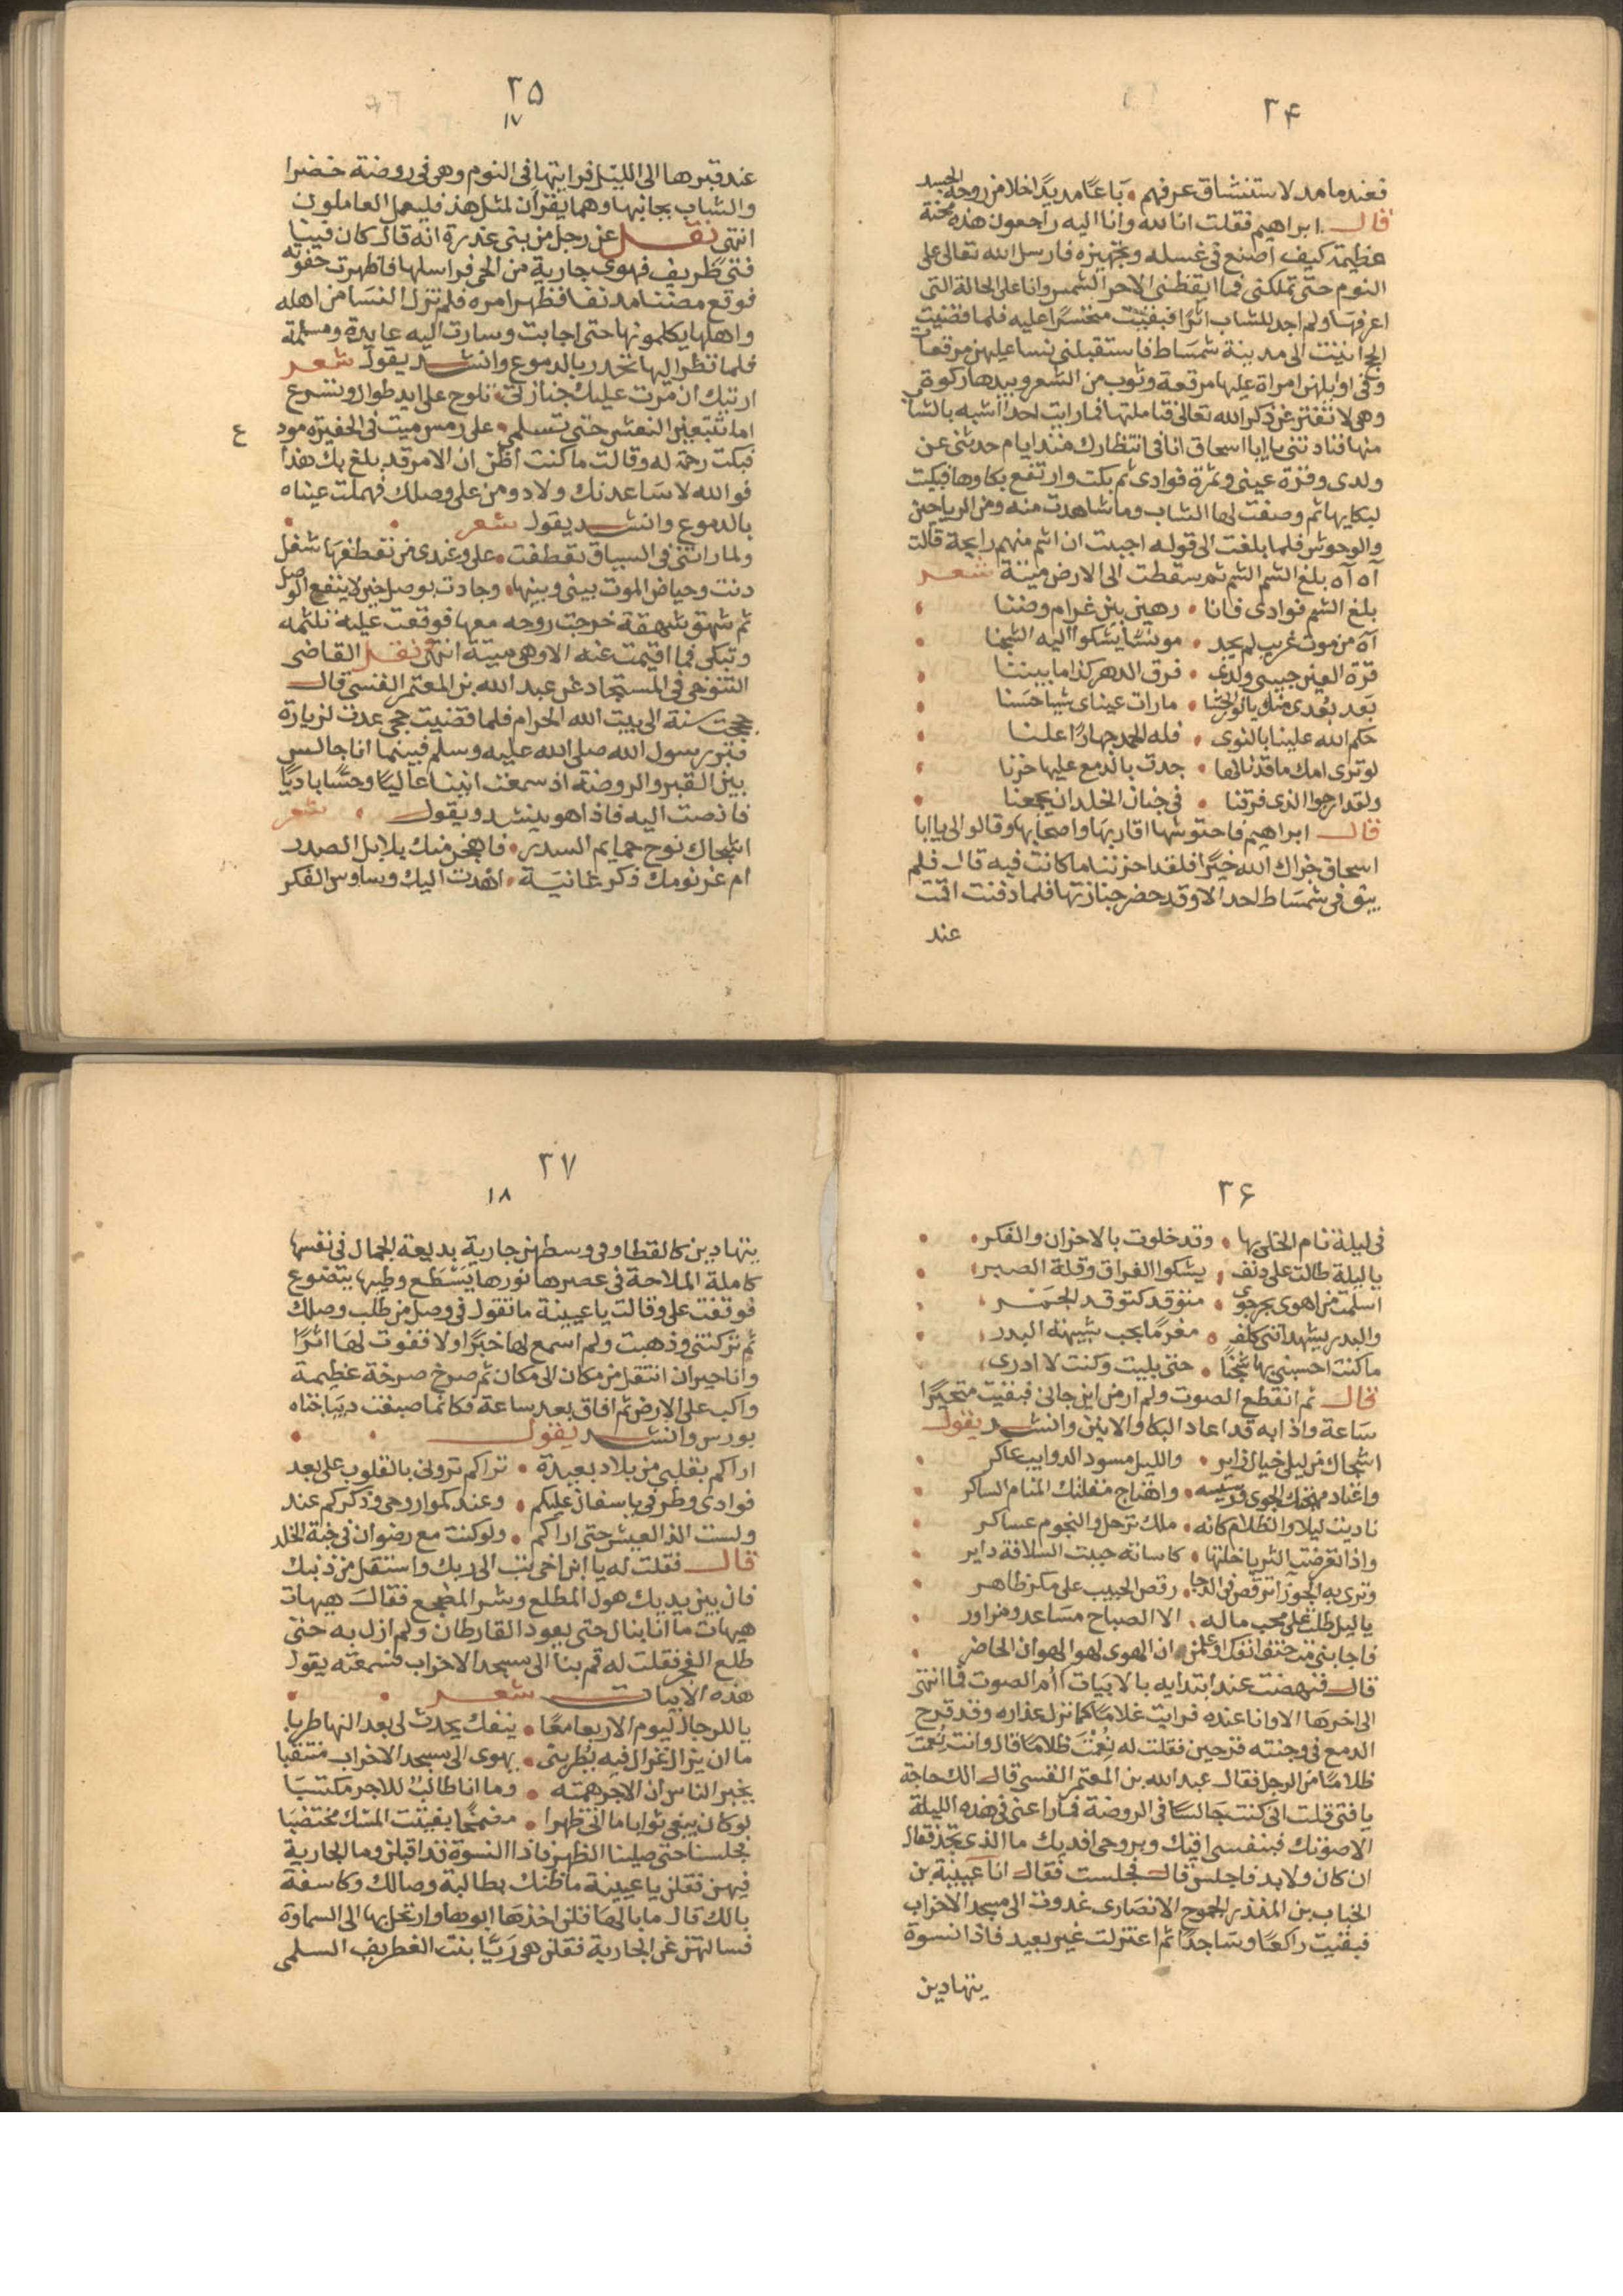 ٣۴
فعندما مد لاستنشاق عرفهم • باعًا مديدًا خلا من روحه الجسد
قال ابراهيم فقلت انا لله وانا اليه راجعون هذه محنة
عظيمة كيف اصنع فى غسله وتجهيزه فارسل الله تعالى على
النوم حتى تملكنى فما ايقظنى الا حر الشمس وانا على الحالة التى
اعرفها ولم اجد للشاب اثرًا فبقيت متحسرًا عليه فلما قضيت
الحج اتيت الى مدينة شمساط فاستقبلنى نسا عليهن مرقعات
وفى اوايلهن امراة عليها مرقعة وثوب من الشعر وبيدها ركوة
وهى لا تفتر عن ذكر الله تعالى فتاملتها فما رايت احدا اشبه بالشاب
منها فنادتنى يا ابا اسحاق انا فى انتظارك منذ ايام حدثنى عن
ولدى وقرة عينى وثمرة فوادى ثم بكت وارتفع بكاوها فبكيت
لبكايها ثم وصفت لها الشاب وما شاهدت منه ومن الرياحين
والوحوش فلما بلغت الى قوله احببت ان اشم منهم رايحة قالت
آه آه بلغ الشم الشم ثم سقطت الى الارض ميتة شعر
بلغ الشم فوادى فانا • رهين بين غرام وضنا
آه من موت غريب لم يجد • مونسًا يشكوا اليه الشجنا
قرة العين حبيبى ولدى • فرق الدهر كذا ما بيننا
بعد بُعدى منك ما رات عيناى شيا حسنا
حكم الله علينا بالنوى • فله الحمد جهارًا علنا
لو ترى امك ما قد نالها • جدت بالدمع عليها حزنا
ولقد ارجوا الذى فرقنا • فى جنان الخلد ان يجمعنا
قال ابراهيم فاحتوشها اقاربها واصحابها وقالوا لى يا ابا
اسحاق جزاك الله خيرًا فلقد احزننا ما كانت فيه قال فلم
يبق فى شمساط احد الا وقد حضر جنازتها فلما دفنت اقمت
عند
٣۵
١٧
عند قبرها الى الليل فرايتها فى النوم وهى فى روضة خضرا
والشاب بجانبها وهما يقرآن لمثل هذ فليعمل العاملون
انتهى نقل عن رجل من بنى عذرة انه قال كان فينا
فتى ظريف فهوى جارية من الحى فراسلها فاظهرت جفوته
فوقع مضنا مدنفا فظهر امره فلم تزل النسا من اهله
واهلها يكلمونها حتى اجابت وسارت اليه عايدة ومسلمة
فلما نظر اليها تحدر بالدموع وانشد يقول شعر
اريتك ان مرت عليك جنازتى • تلوح على ايد طوال وتشرع
اما تتبعين النعش حتى تسلمى • على رمس ميت فى الحفيرة مود ع
فبكت رحمة له وقالت ما كنت اظن ان الامر قد بلغ بك هذا
فوالله لا ساعدنك ولادومن على وصلك فهملت عيناه
بالدموع وانشد يقول شعر
ولما راتنى فى السياق تعطفت • على وعندى من تعطفها شغل
دنت وحياض الموت بينى وبينها • وجادت بوصل حين لا ينفع الوصل
ثم شهق شهقة خرجت روحه معها فوقعت عليه تلثمه
وتبكى فما اقيمت عنه الا وهى ميتة انتهى نقل القاضى
التنوخى فى المستجاد عن عبد الله بن المعتمر القنسى قال
حججت سنة الى بيت الله الحرام فلما قضيت حجى عدت لزيارة
قبر رسول الله صلى الله عليه وسلم فبينما انا جالس
بين القبر والروضة اذ سمعت انينا عاليًا وحسًا باديًا
فانصت اليه فاذا هو ينشد ويقول • شعر
اشجاك نوح حمايم السدر • فاهجن منك بلابل الصدر
ام عز نومك ذكر غانية • اهدت اليك وساوس الفكر
٣۶
فى ليلة نام الخلى بها • وقد خلوت بالاحزان والفكر
يا ليلة طالت على دنف • يشكوا الفراق وقلة الصبر
اسلمت من اهوى بحر جوى • متوقد كتوقد الجمر
والبدر يشهد اننى كلف • مغرمًا بحب شبيهة البدر
ما كنت احسبنى بها شجنًا • حتى بليت وكنت لا ادرى
قال ثم انقطع الصوت ولم ار من اين جانى فبقيت متحيرًا
ساعة واذا به قد اعاد البكا والانين وانشد يقول
اشجاك من ليلى خيال زاير • والليل مسود الدوايب عاكر
واعتاد مهجتك الجوى • واهتاج مقلتك المنام الساكر
ناديت ليلا والظلام كانه • ملك ترحل والنجوم عساكر
واذا تعرضت الثريا خلتها • كاسا به حبت السلافة داير
وترى به الجوزا ترقص فى الدجا • رقص الحبيب على مكرظاهر
يا ليل طلت على محب ماله • الا الصباح مساعد ومزاور
فاجابنى مت حتف انفك واعلمن • ان الهوى لهو الهوان الحاضر
قال فنهضت عند ابتدايه بالابيات أام الصوت فما انتهى
الى اخرها الا وانا عنده فرايت غلامًا كما نزل عذاره وقد قرح
الدمع فى وجنته قرحين فقلت له نعمت ظلاما قال وانت نعمت
ظلامًا من الرجل فقال عبد الله بن المعتمر القنسى قال الك حاجة
يا فتى قلت انى كنت جالسًا فى الروضة فما راعنى فى هذه الليلة
الا صوتك فبنفسى اقيك وبروحى افديك ما الذى تجد فقال
ان كان ولا بد فاجلس قال فجلست فقال انا عيينة بن
الخباب بن المنذر الجموح الانصارى غدوت الى مسجد الاحزاب
فبقيت راكعًا وساجدًا ثم اعتزلت غير بعيد فاذا نسوة
يتهادين
٣٧
١٨
يتهادين كالقطا وفى وسطهن جارية بديعة الجمال فى نفسها
كاملة الملاحة فى عصرها نورها يسطع وطيبها يتضوع
فوقفت على وقالت يا عيينة ما تقول فى وصل من طلب وصلك
ثم تركتنى وذهبت ولم اسمع لها خبرًا ولا قفوت لها اثرًا
وانا حيران انتقل من مكان الى مكان ثم صرخ صرخة عظيمة
واكب على الارض ثم افاق بعد ساعة فكانما صبغت ديباجتاه
بورس وانشد يقول
اراكم بقلبى من بلاد بعيدة • تراكم ترونى بالقلوب على بعد
فوادى وطرفى ياسفان عليكم • وعندكموا روحى وذكركم عند
ولست الذ العيش حتى اراكم • ولو كنت مع رضوان فى جنة الخلد
قال فقلت له يا ابن اخى تب الى ربك واستقل من ذنبك
فان بين يديك هول المطلع وشر المضجع فقال هيهات
هيهات ما انا بنال حتى يعود القارطان ولم ازل به حتى
طلع الفجر فقلت له قم بنا الى مسجد الاحزاب فسمعته يقول
هذه الابيات شعر
يا للرجال ليوم الاربعا معًا • ينفك يحدث لى بعد النها طربا
ما ان يزال غزال فيه يظربنى • يهوى الى مسجد الاحزاب منتقبا
يخبر الناس ان الاجر همته • وما انا طالب للاجر مكتسبا
لو كان يبغى ثوابا ما اتى ظهرا • مضمخًا بفتيت المسك مختضبا
فجلسنا حتى صلينا الظهر فاذا النسوة قد اقبلن وما الجارية
فيهن فقلن يا عيينة ما ظنك بطالبة وصالك وكاسفة
بالك قال ما بالها قلن اخذها ابوها وارتحل بها الى السماوة
فسالتهن عن الجارية فقلن هى ريّا بنت الغطريف السلمى